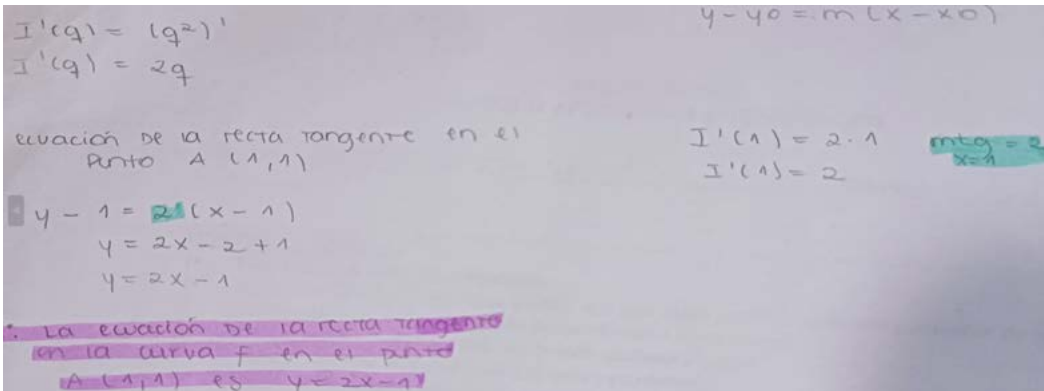 I'(q) = (q²)'
I'(q) = 2q
y - y0 = m (x - x0)
ecuación De la recta Tangente en el
Punto A (1,1)
I'(1) = 2 · 1
I'(1) = 2
mtg = 2
x=1
y - 1 = 2 (x - 1)
y = 2x - 2 + 1
y = 2x - 1
La ecuación De la recta Tangente
en la curva f en el punto
A (1,1) es y = 2x-1